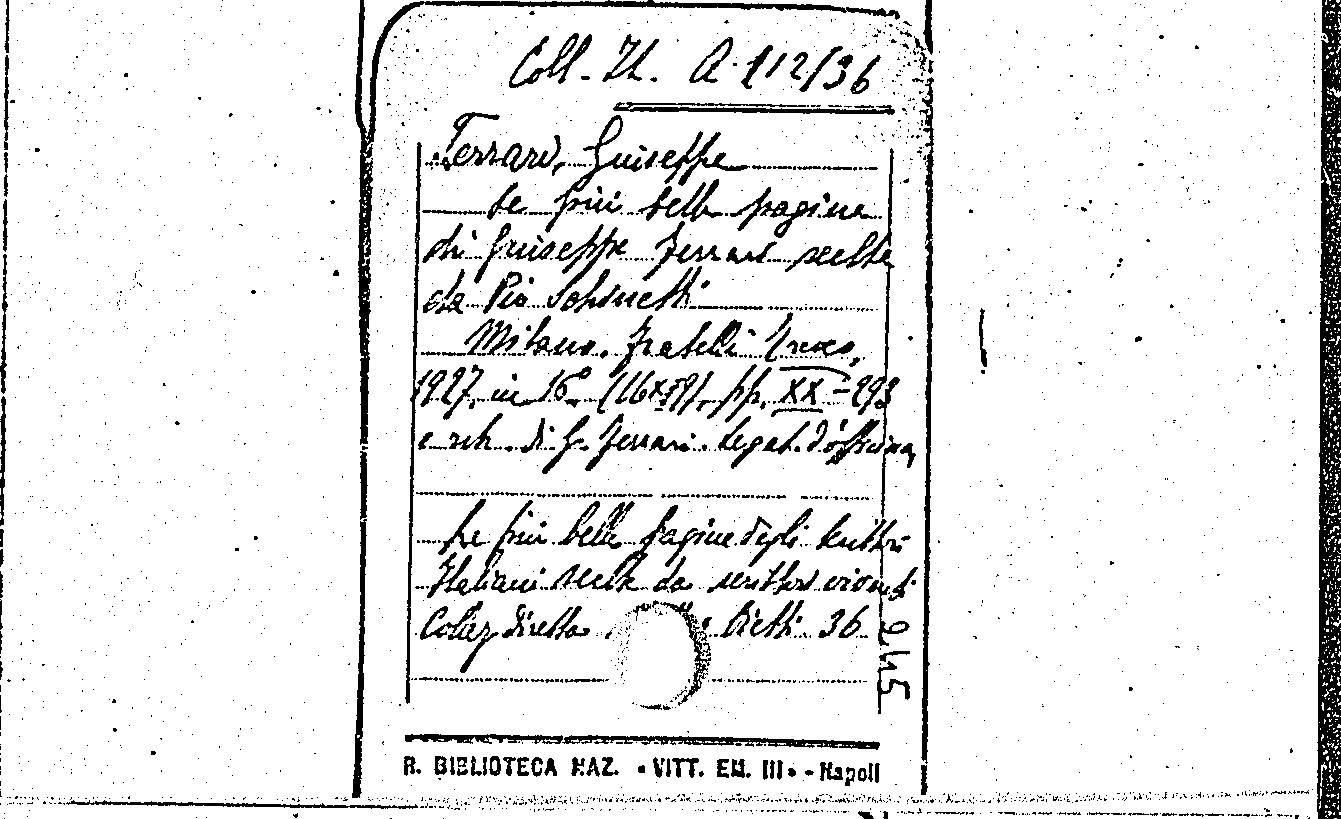 Coll. It. A 112/36
Ferrari, Giuseppe
Le più belle pagine
di Giuseppe Ferrari scelte
da Pio Schinetti
Milano, Fratelli Treves,
1927, in 16°, pp. XX-293
e rit. di G. Ferrari. Legat. d'officina,
Le più belle pagine degli scrittori
Italiani scelte da scrittori viventi
Colaz. diretta 36
245
R. BIBLIOTECA NAZ. "VITT. EM. III" - Napoli